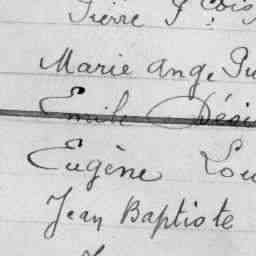 Pierre Fçois
Marie Ange
Emile Dési
Eugène Lou
Jean Baptiste